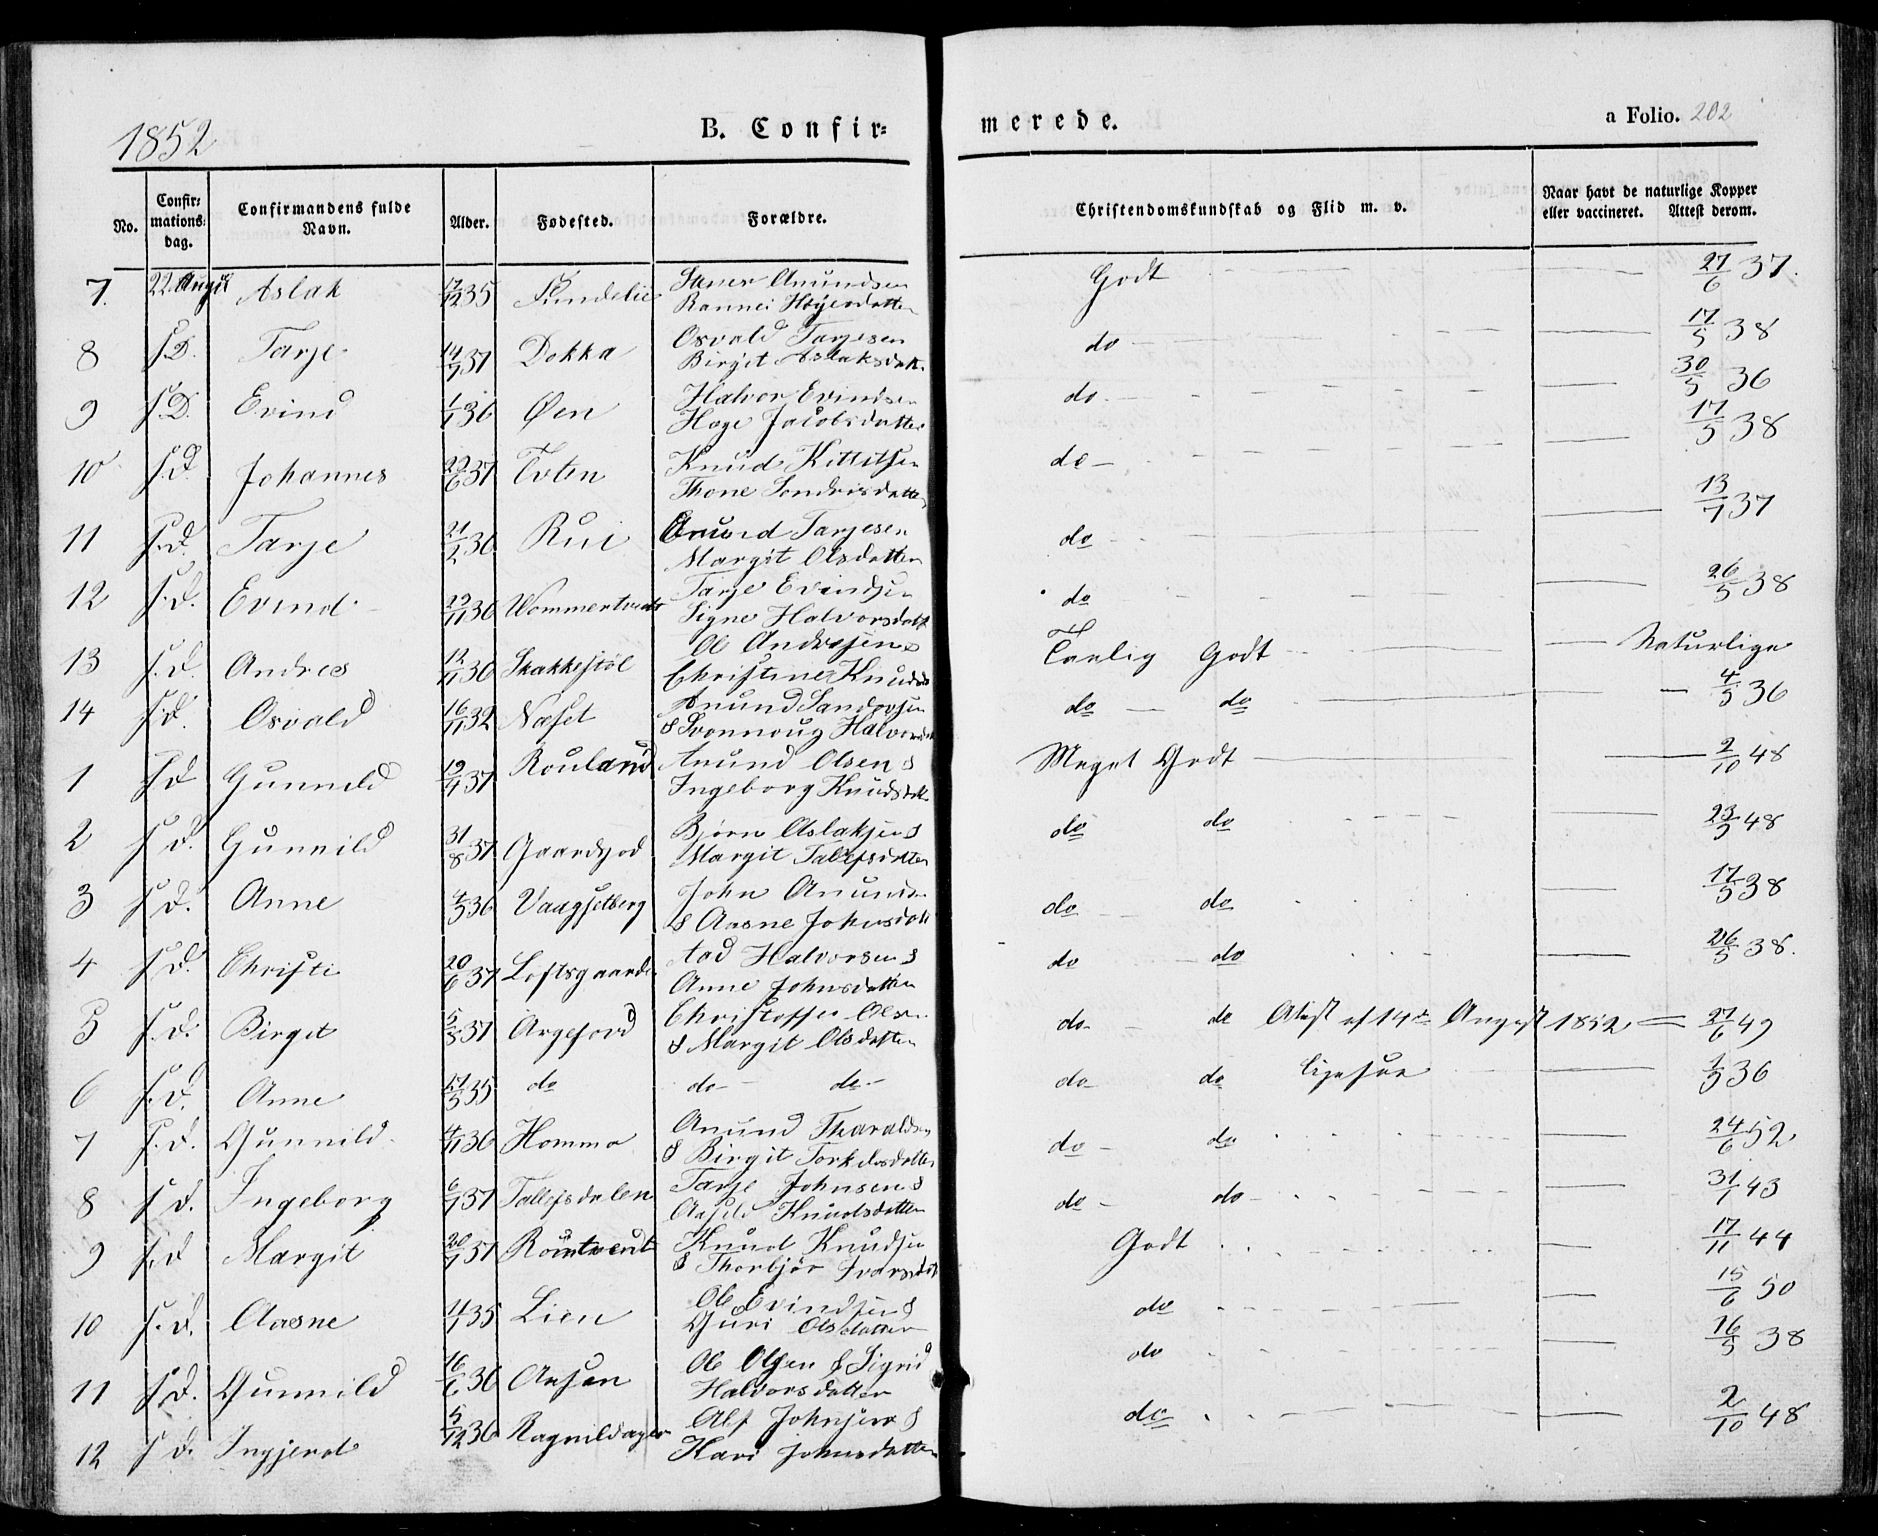 1852
B. Confir=
merede.
a Folio. 202
No.
Confir=
mations=
dag.
Confirmandens fulde
Navn.
Alder.
Fødested.
Forældre.
Christendomskundskab og Flid m. v.
Naar havt de naturlige Kopper
eller vaccineret. Attest derom.
7. 22 August Aslak 17/12 35
Rannei Høyesdatter Godt 27/6 37.
8 s.D. Tarje 14/7 37 Dokka Osvald Tarjesen
Birgit Aslaksdatt. do 17/5 38
9 s.D. Evind 1/1 36 Øen Halvor Evindsen
Hæge Jacobsdatter do. 30/5 36
10 s.d. Johannes 29/6 37 Tvten Knud Kittilsen
Thone Sondresdatter do 17/5 38
11 s.d. Tarje 21/2 36 Rui Anund Tarjesen
Margit Olsdatter do 13/7 37
12 s.d. Evind 29/11 36 Tarje Evindsen
Signe Halvorsdatt do 26/5 38
13 s.d. Andres 12/11 36 Ole Andresen &
Christine Knudsd Temlig Godt Naturlige
14 s.d. Osvald 16/11 32 Næset Anund
& Halvorsd do do 4/5 36
1 s d Gunnild 19/4 37 Rouland Anund Olsen &
Ingeborg Knudsdatt Meget Godt 2/10 48
2 s d. Gunnild 31/8 37 Gaardsjod Bjørn Aslaksen &
Margit Tallefsdatter do do 23/5 48
3 s d. Anne 4/3 36 Vaagsliberg John Anunds
& Aasne Johnsdatt do do 17/5 38
4 s d. Christi 20/6 37 Loftsgaarde Aad Halvorsen &
Anne Johnsdatter do do 26/5 38.
5 s.d. Birgit 5/5 37 Argeford Christoffer Olsen
& Margit Olsdatter do do Attest af 14de August 1852 27/6 49
6 s.d. Anne 27/3 35 do do do Ligesaa 36
7 s.d. Gunnild 4/11 36 Homme Anund Tharaldsen
& Birgit Torkilsdatter do do 24/6 52
8 s d. Ingeborg 6/7 37 Tallefsdalen Tarje Johnsen &
Aaselv Knudsdatter do do 31/1 43
9 s.d Margit 20/7 37 Knud Knudsen
& Thorbjør Ivarsdatt Godt 17/11 44
10 s.d. Aasne 11/1 35 Lien Ole Evindsen &
Guri Olsdatter do 15/6 50
11 s d. Gunnild 16/6 36 Aasen Ole Olsen & Sigrid
Halvorsdatter do 16/5 38
12 s d. Ingjerd 5/12 36 Ragnildager Alf Johnsen &
Kari Johnsdatter do 2/10 48